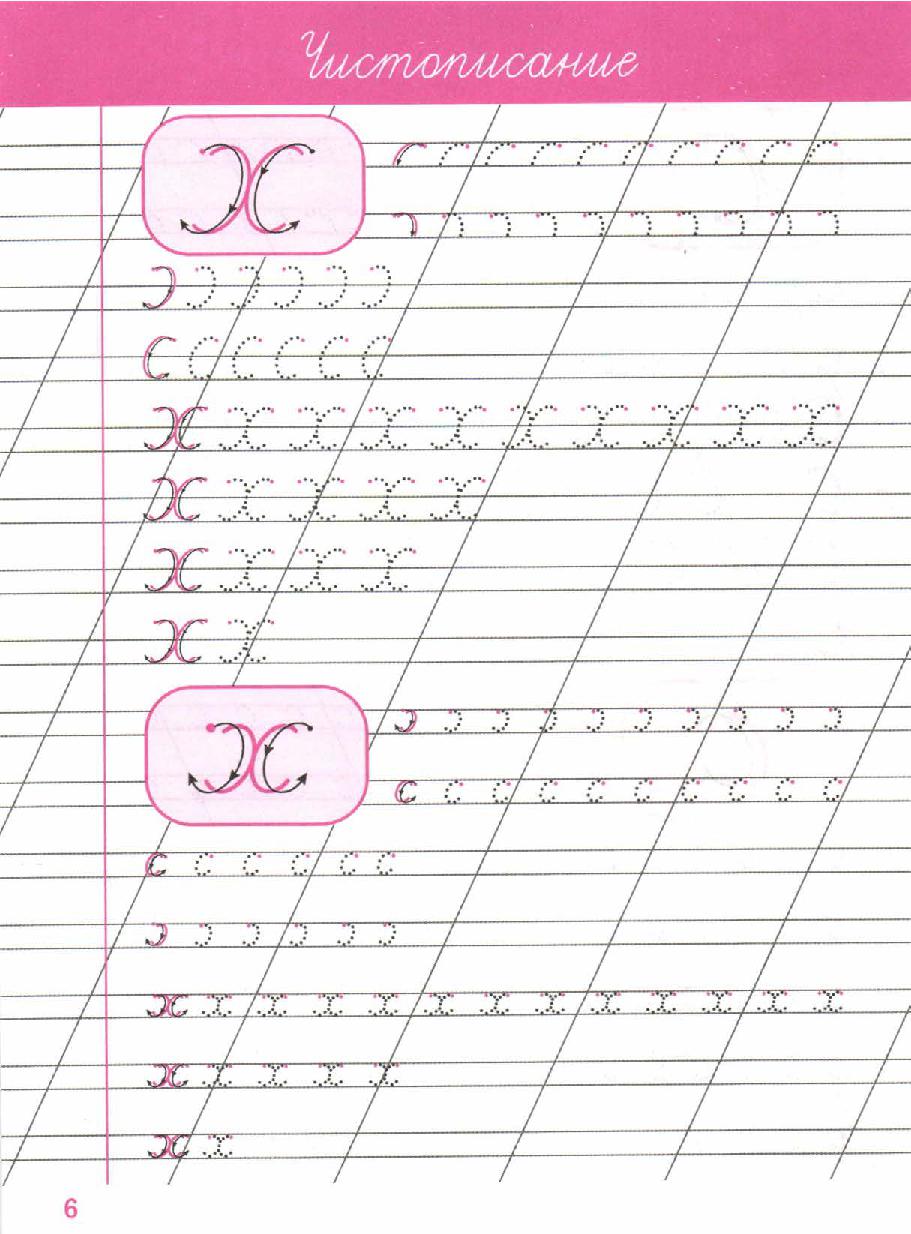 Чистописание
Х
Х Х Х Х Х Х Х Х Х Х
Х Х Х Х Х
Х Х Х Х
Х Х
х
х х х х х х х х х х х х х
х х х х х
х х
6